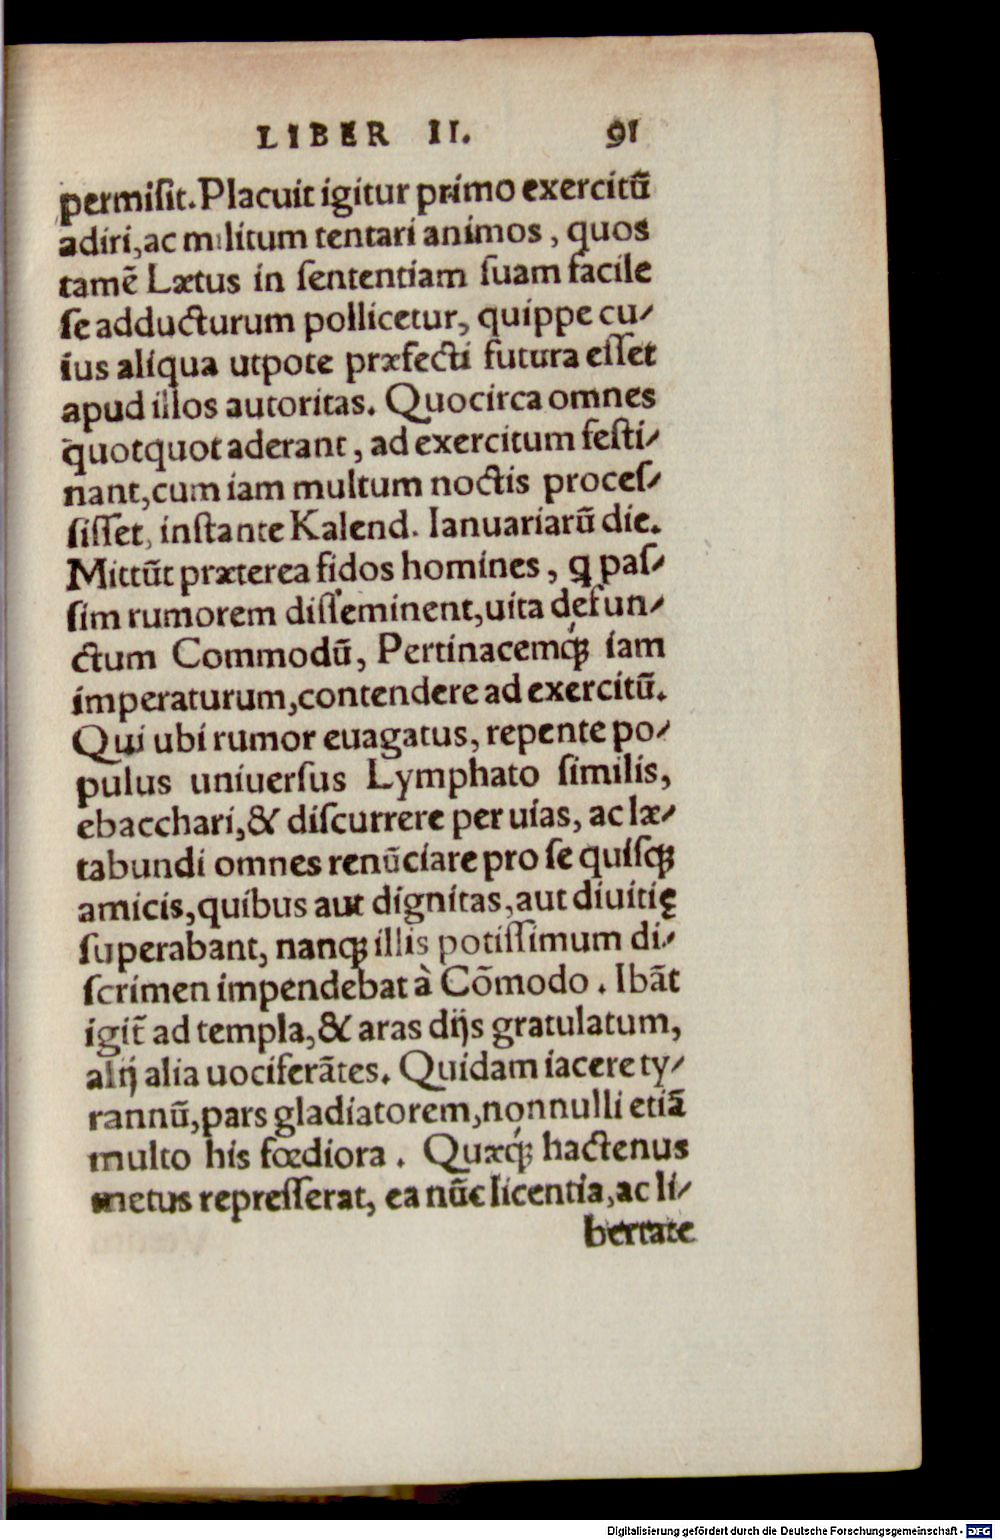 LIBER II. 91
permiſit. Placuit igitur primo exercitũ
adiri, ac militum tentari animos, quos
tamẽ Lætus in ſententiam ſuam facile
ſe adducturum pollicetur, quippe cu⸗
ius aliqua utpote præfecti futura eſſet
apud illos autoritas. Quocirca omnes
quotquot aderant, ad exercitum feſti⸗
nant, cum iam multum noctis proceſ⸗
ſiſſet, inſtante Kalend. Ianuariarũ die.
Mittũt præterea fidos homines, ꝗ paſ⸗
ſim rumorem diſſeminent, uita defun⸗
ctum Commodũ, Pertinacemq́ꝫ iam
imperaturum, contendere ad exercitũ.
Qui ubi rumor euagatus, repente po⸗
pulus uniuerſus Lymphato ſimilis,
ebacchari, & diſcurrere per uias, ac læ⸗
tabundi omnes renũciare pro ſe quiſqꝫ
amicis, quibus aut dignitas, aut diuitię
ſuperabant, nanqꝫ illis potiſſimum di⸗
ſcrimen impendebat à Cõmodo. Ibãt
igit̃ ad templa, & aras dijs gratulatum,
alij alia uociferãtes. Quidam iacere ty⸗
rannũ, pars gladiatorem, nonnulli etiã
multo his fœdiora. Quæq́ꝫ hactenus
metus repreſſerat, ea nũc licentia, ac li⸗
bertate
Digitalisierung gefördert durch die Deutsche Forschungsgemeinschaft - DFG